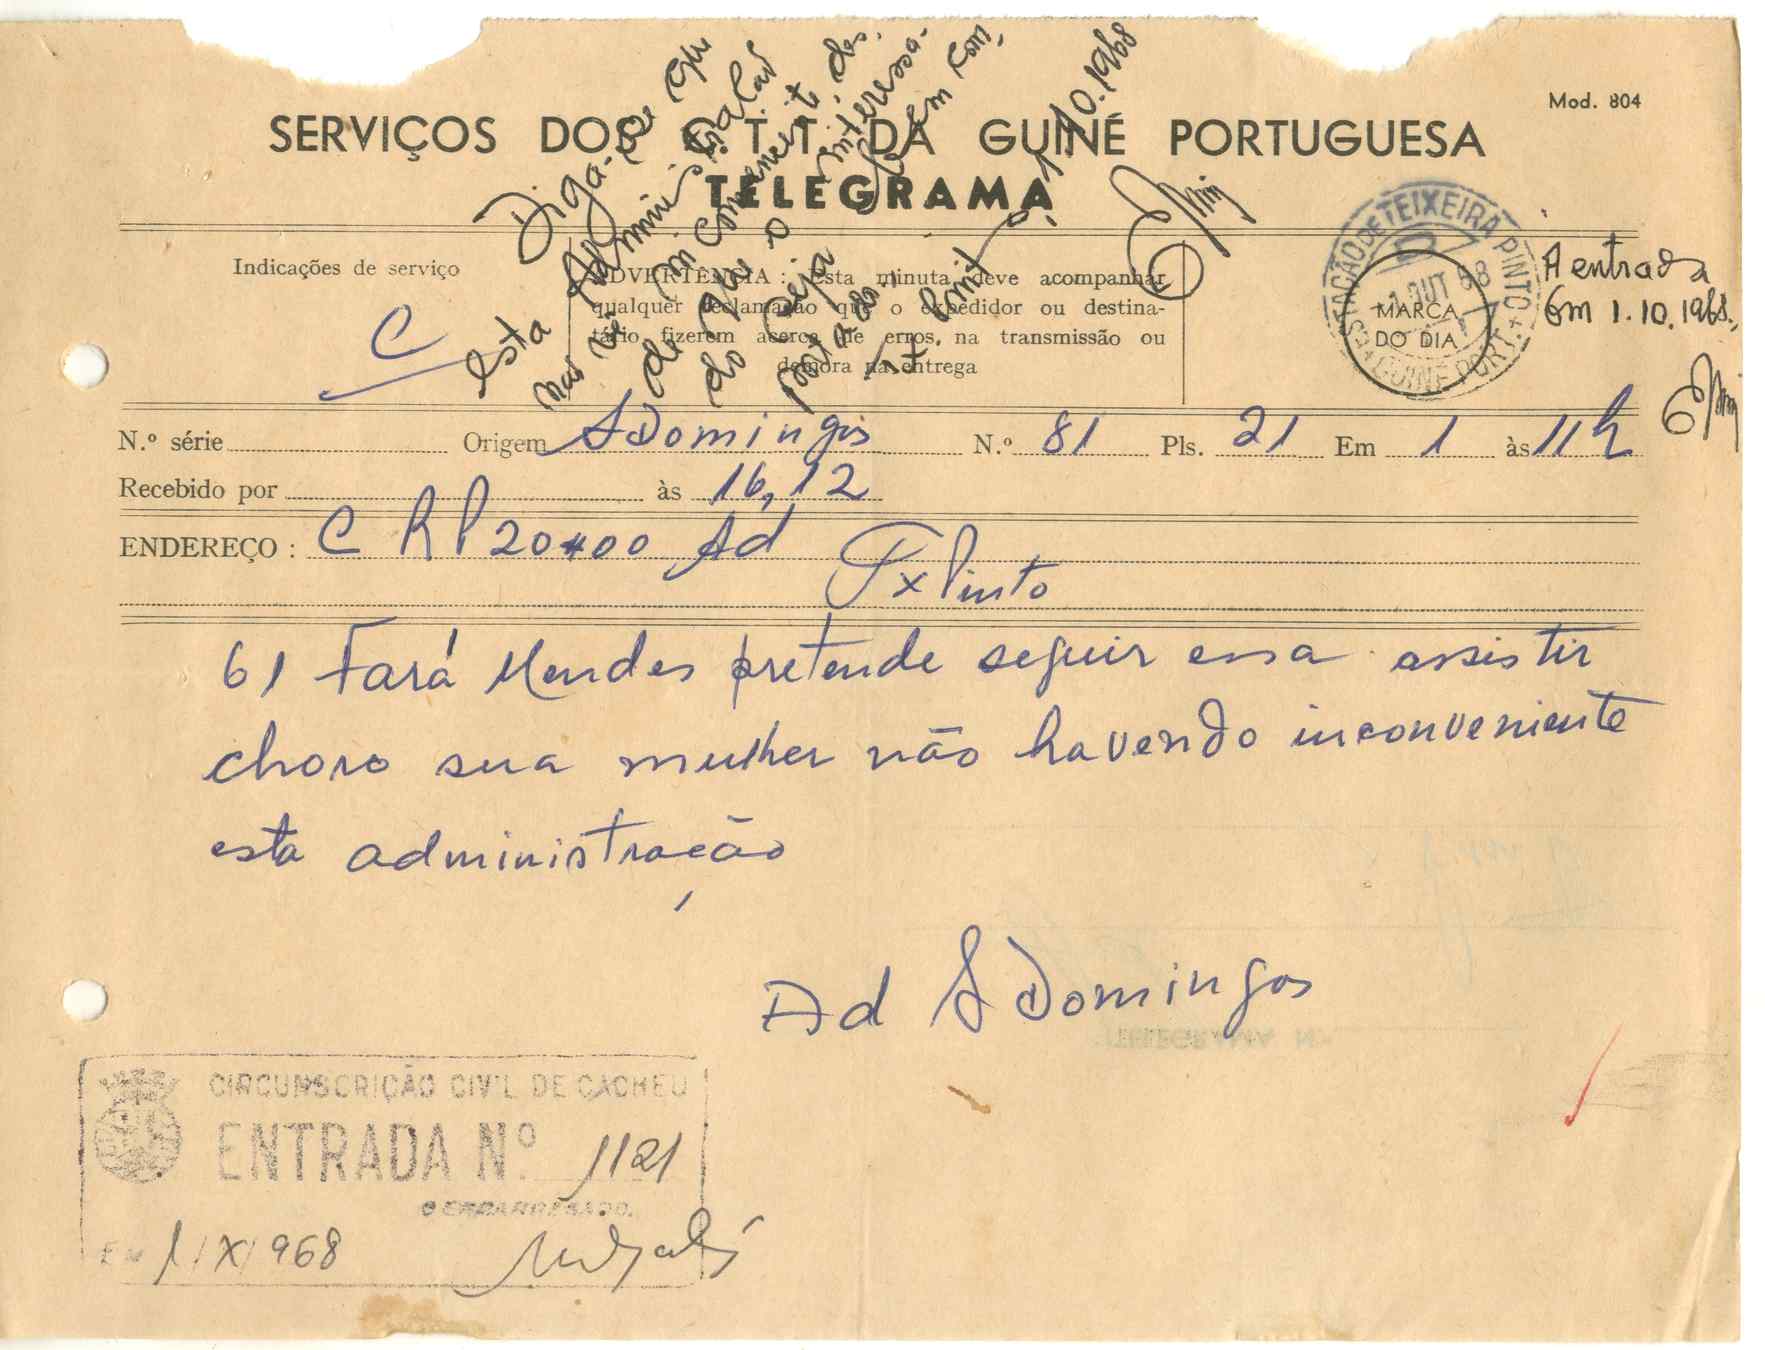 Mod. 804
SERVIÇOS DOS C. T. T. DA GUINÉ PORTUGUESA
TELEGRAMA
Diga-se que
esta Administração
não vê inconveniente, des-
de que o interessa-
do seja
1.10.1968
Indicações de serviço
C
ADVERTÊNCIA : Esta minuta deve acompanhar
qualquer reclamação que o expedidor ou destina-
tário fizerem acerca de erros, na transmissão ou
demora na entrega
ESTAÇÃO DE TEIXEIRA PINTO
1 OUT 68
GUINÉ PORT.
MARCA
DO DIA
A entrada
em 1.10.1968.,
N.º série Origem S Domingos N.º 81 Pls. 21 Em 1 às 11 h
Recebido por às 16,12
ENDEREÇO : C RP 20$00 Ad
Tx Pinto
61 Fará Mendes pretende seguir essa assistir
choro sua mulher não havendo inconveniente
esta administração
Ad S Domingos
CIRCUNSCRIÇÃO CIVIL DE CACHEU
ENTRADA N.º 1121
O ENCARREGADO,
EM 1/X/968